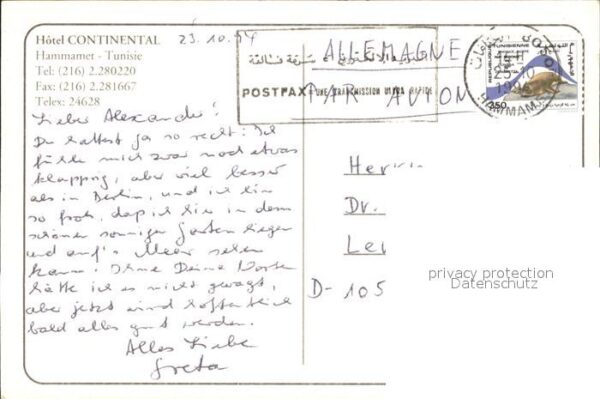 Hôtel CONTINENTAL
Hammamet - Tunisie
Tel: (216) 2.280220
Fax: (216) 2.281667
Telex: 24628
23.10.94
ALLEMAGNE
POSTFAX UNE TRANSMISSION ULTRA RAPIDE
PAR AVION
REPUBLIQUE TUNISIENNE
250
25-10
199
HAMMAM
Lieber Alexander!
Du hattest ja so recht: Ich
fühle mich zwar noch etwas
klapprig, aber viel besser
als in Berlin, und ich bin
so froh, daß ich hier in dem
schönen sonnigen Garten liegen
und auf's Meer sehen
kann. Ohne Deine Worte
hätte ich es nicht gewagt,
aber jetzt wird hoffentlich
bald alles gut werden.
Alles Liebe
Greta
Herrn
Dr.
Lei
D-105
privacy protection
Datenschutz